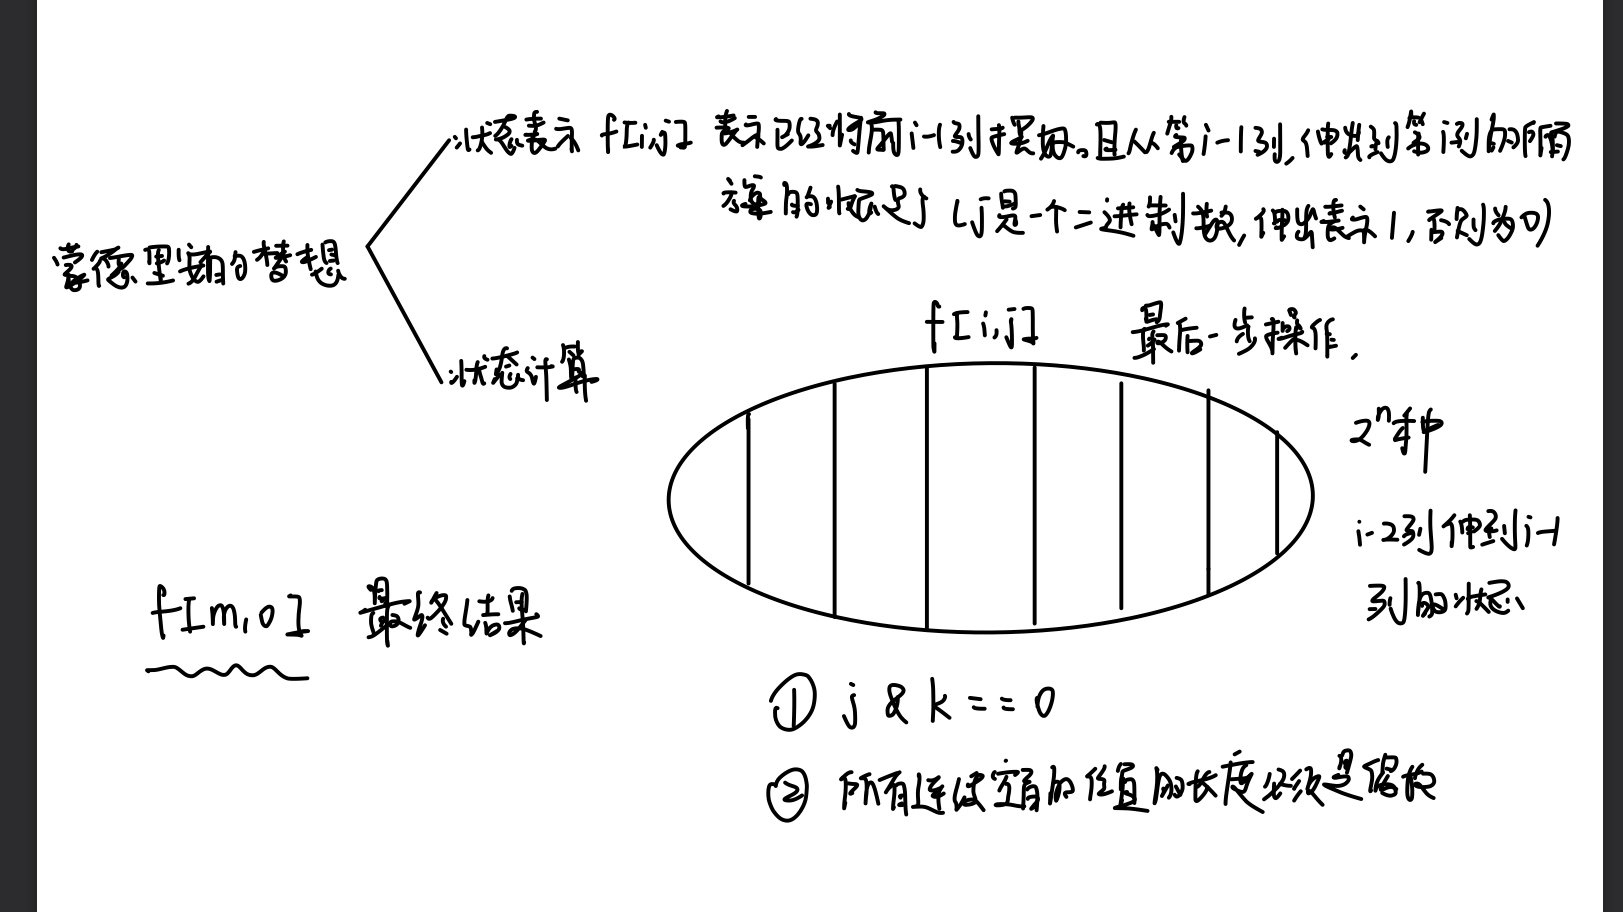 状态表示 f[i,j] 表示已经将前i-1列摆好。且从第i-1列,伸出到第i列的所有
方案的状态是j (j是一个二进制数,伸出表示1,否则为0)
蒙德里安的替想
状态计算
f[i,j] 最后一步操作.
2ⁿ种
i-2列伸到i-1
列的状态
f[m,0] 最终结果
① j & k == 0
② 所有连续空着的位置的长度必须是偶数